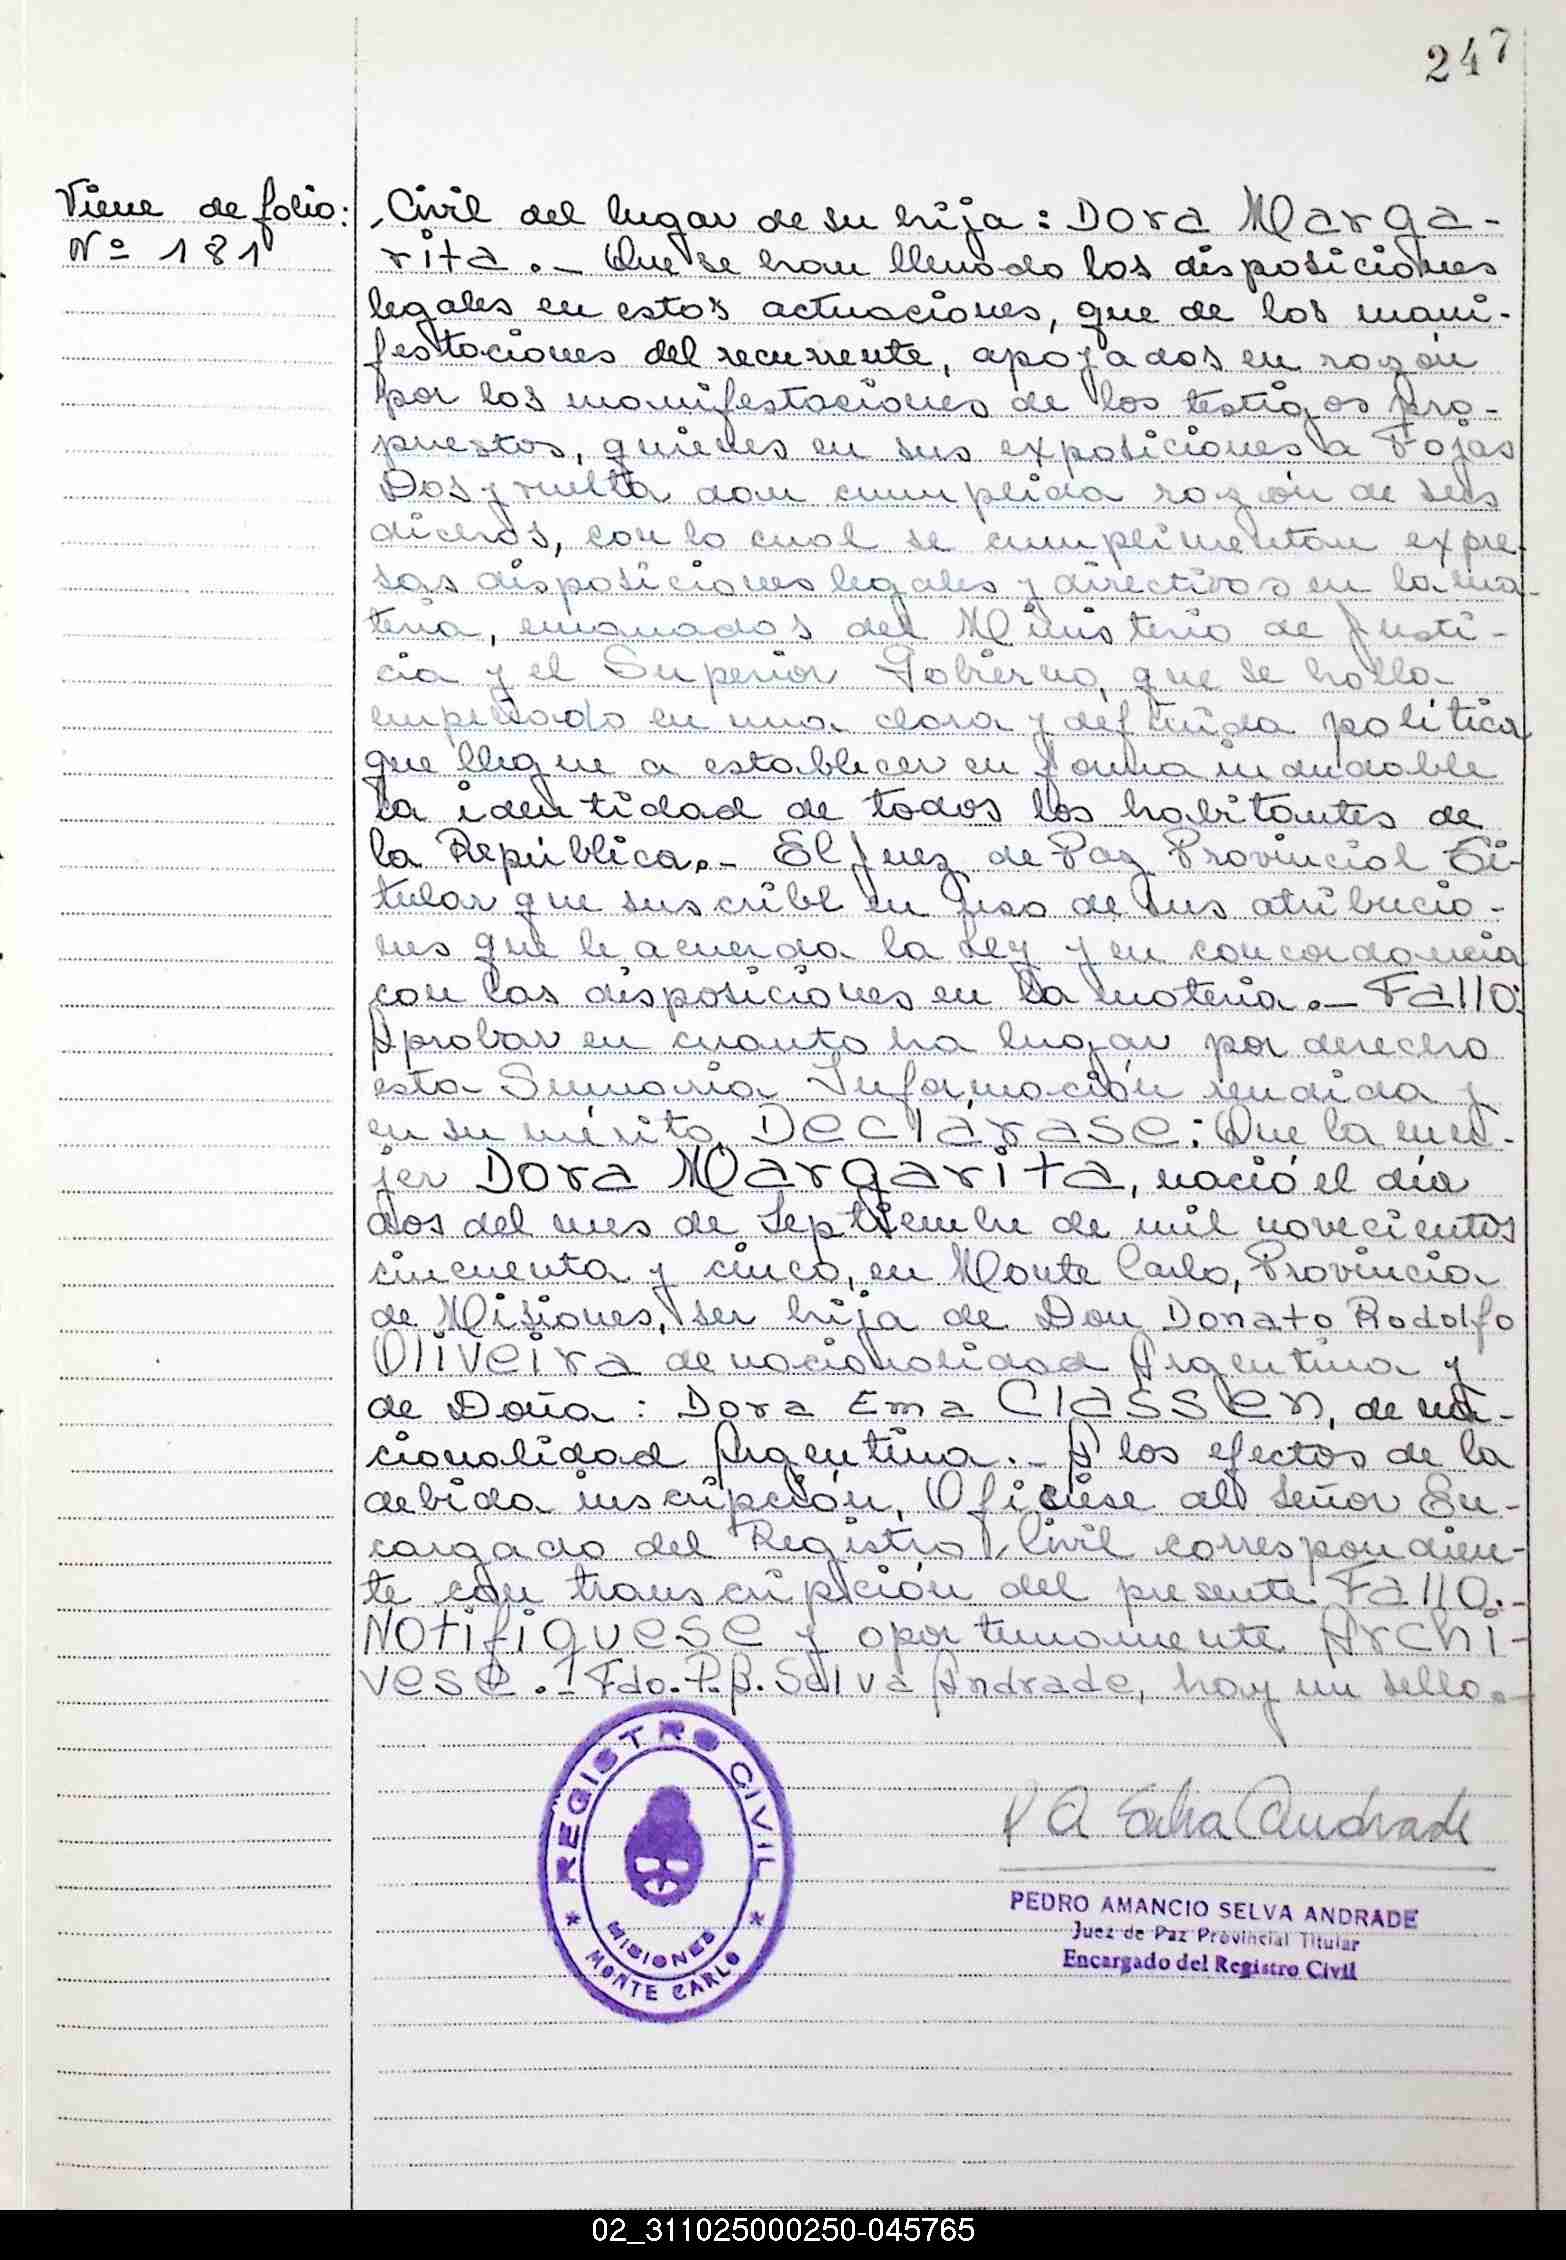 247
Viene de folio:
Nº 181
Civil del lugar de su hija: Dora Marga-
rita.- Que se han llenado las disposiciones
legales en estas actuaciones, que de las mani-
festaciones del recurrente, apoyados en razón
por las manifestaciones de los testigos pro-
puestos, quienes en sus exposiciones a Fojas
Dos y vuelta dan cumplida razón de sus
dichos, con lo cual se cumplimentan expre-
sas disposiciones legales y directivas en la ma-
teria, emanadas del Ministerio de Justi-
cia y el Superior Gobierno, que se halla
empeñado en una clara y definida política
que llegue a establecer en forma indudable
la identidad de todos los habitantes de
la República.- El Juez de Paz Provincial Ti-
tular que suscribe en uso de sus atribucio-
nes que le acuerda la Ley y en concordancia
con las disposiciones en la materia.- Fallo:
Aprobar en cuanto ha lugar por derecho
esta Sumaria Información rendida y
en su mérito, Declárase: Que la mu-
jer Dora Margarita, nació el día
dos del mes de Septiembre de mil novecientos
cincuenta y cinco, en Monte Carlo, Provincia
de Misiones, ser hija de Don Donato Rodolfo
Oliveira de nacionalidad Argentina y
de Doña: Dora Ema Classen, de na-
cionalidad Argentina.- A los efectos de la
debida inscripción, Ofíciese al Señor En-
cargado del Registro Civil correspondien-
te con transcripción del presente Fallo.-
Notifíquese y oportunamente Archi-
vese.- Fdo. P. A. Selva Andrade, hay un sello.-
REGISTRO CIVIL
MISIONES
* MONTE CARLO *
P A Selva Andrade
PEDRO AMANCIO SELVA ANDRADE
Juez de Paz Provincial Titular
Encargado del Registro Civil
02_311025000250-045765